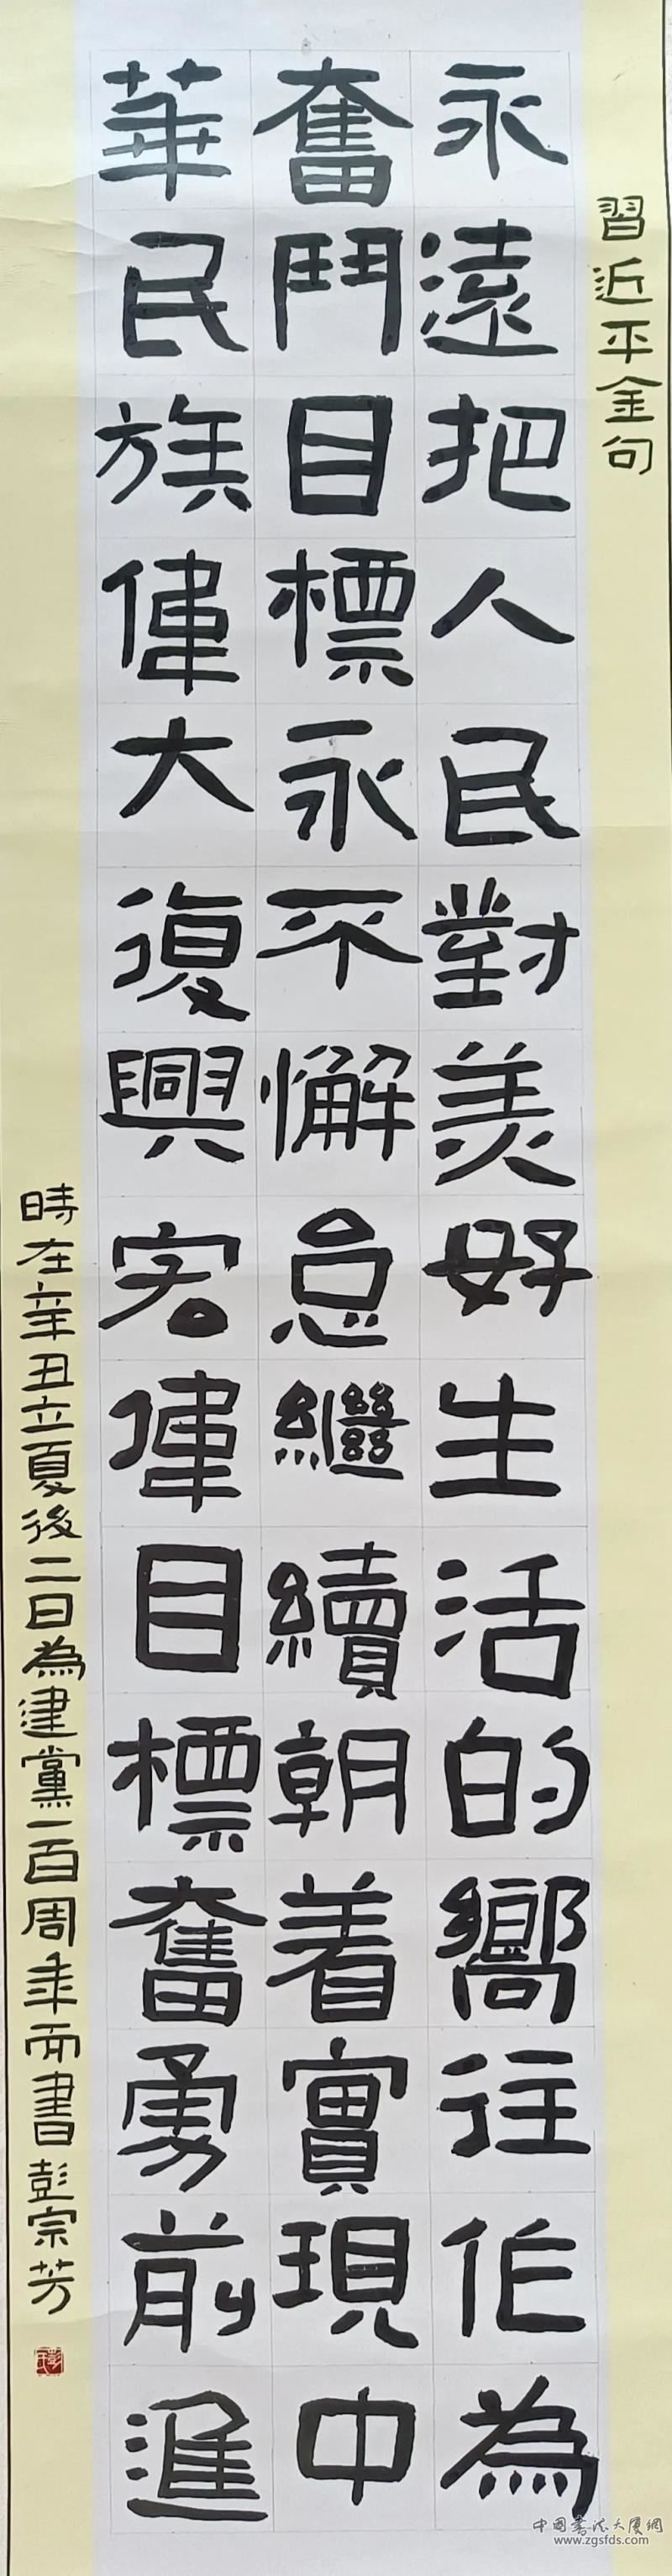 習近平金句
永遠把人民對美好生活的嚮往作為
奮鬥目標永不懈怠繼續朝着實現中
華民族偉大復興宏偉目標奮勇前進
時在辛丑立夏後二日為建黨一百周年而書彭宗芳
中国书法大厦网
www.zgsfds.com